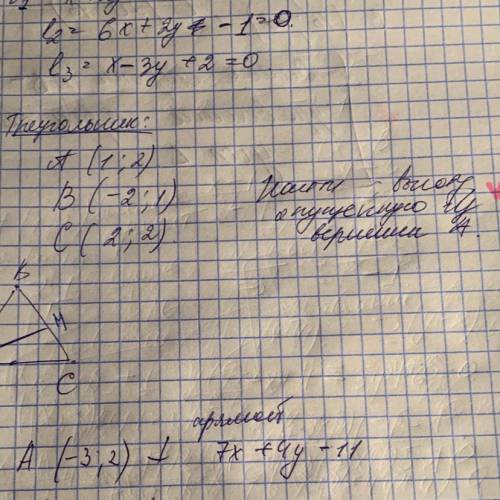 l₂ = 6x + 2y - 1 = 0.
l₃ = x - 3y + 2 = 0
Треугольник:
A (1; 2)
B (-2; 1)
C (2; 2)
Найти высоту
опущенную из
вершины A.
B
H
C
прямой
A (-3; 2) ⊥ 7x + 4y - 11